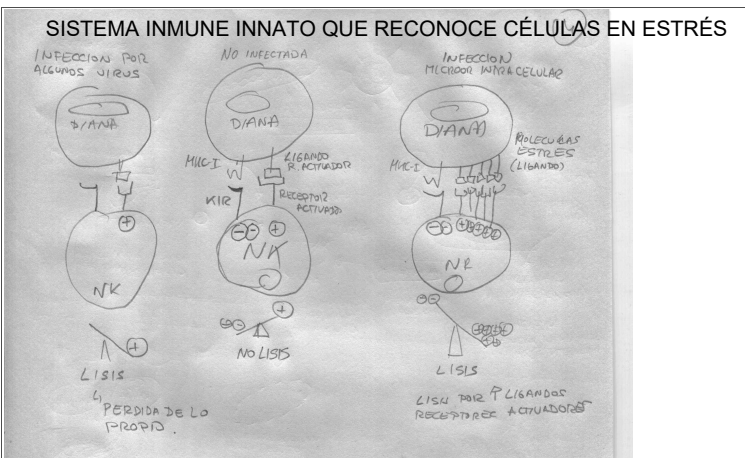 SISTEMA INMUNE INNATO QUE RECONOCE CÉLULAS EN ESTRÉS
INFECCION POR
ALGUNOS VIRUS
DIANA
+
NK
+
LISIS
PERDIDA DE LO
PROPIO.
NO INFECTADA
DIANA
MHC-I
LIGANDO
R. ACTIVADOR
KIR
RECEPTOR
ACTIVADOR
- - +
NK
- - +
NO LISIS
INFECCION
MICROOR INTRACELULAR
DIANA
MHC-I
MOLECULAS
ESTRES
(LIGANDO)
NK
LISIS
LISIS POR ↑ LIGANDOS
RECEPTORES ACTIVADORES